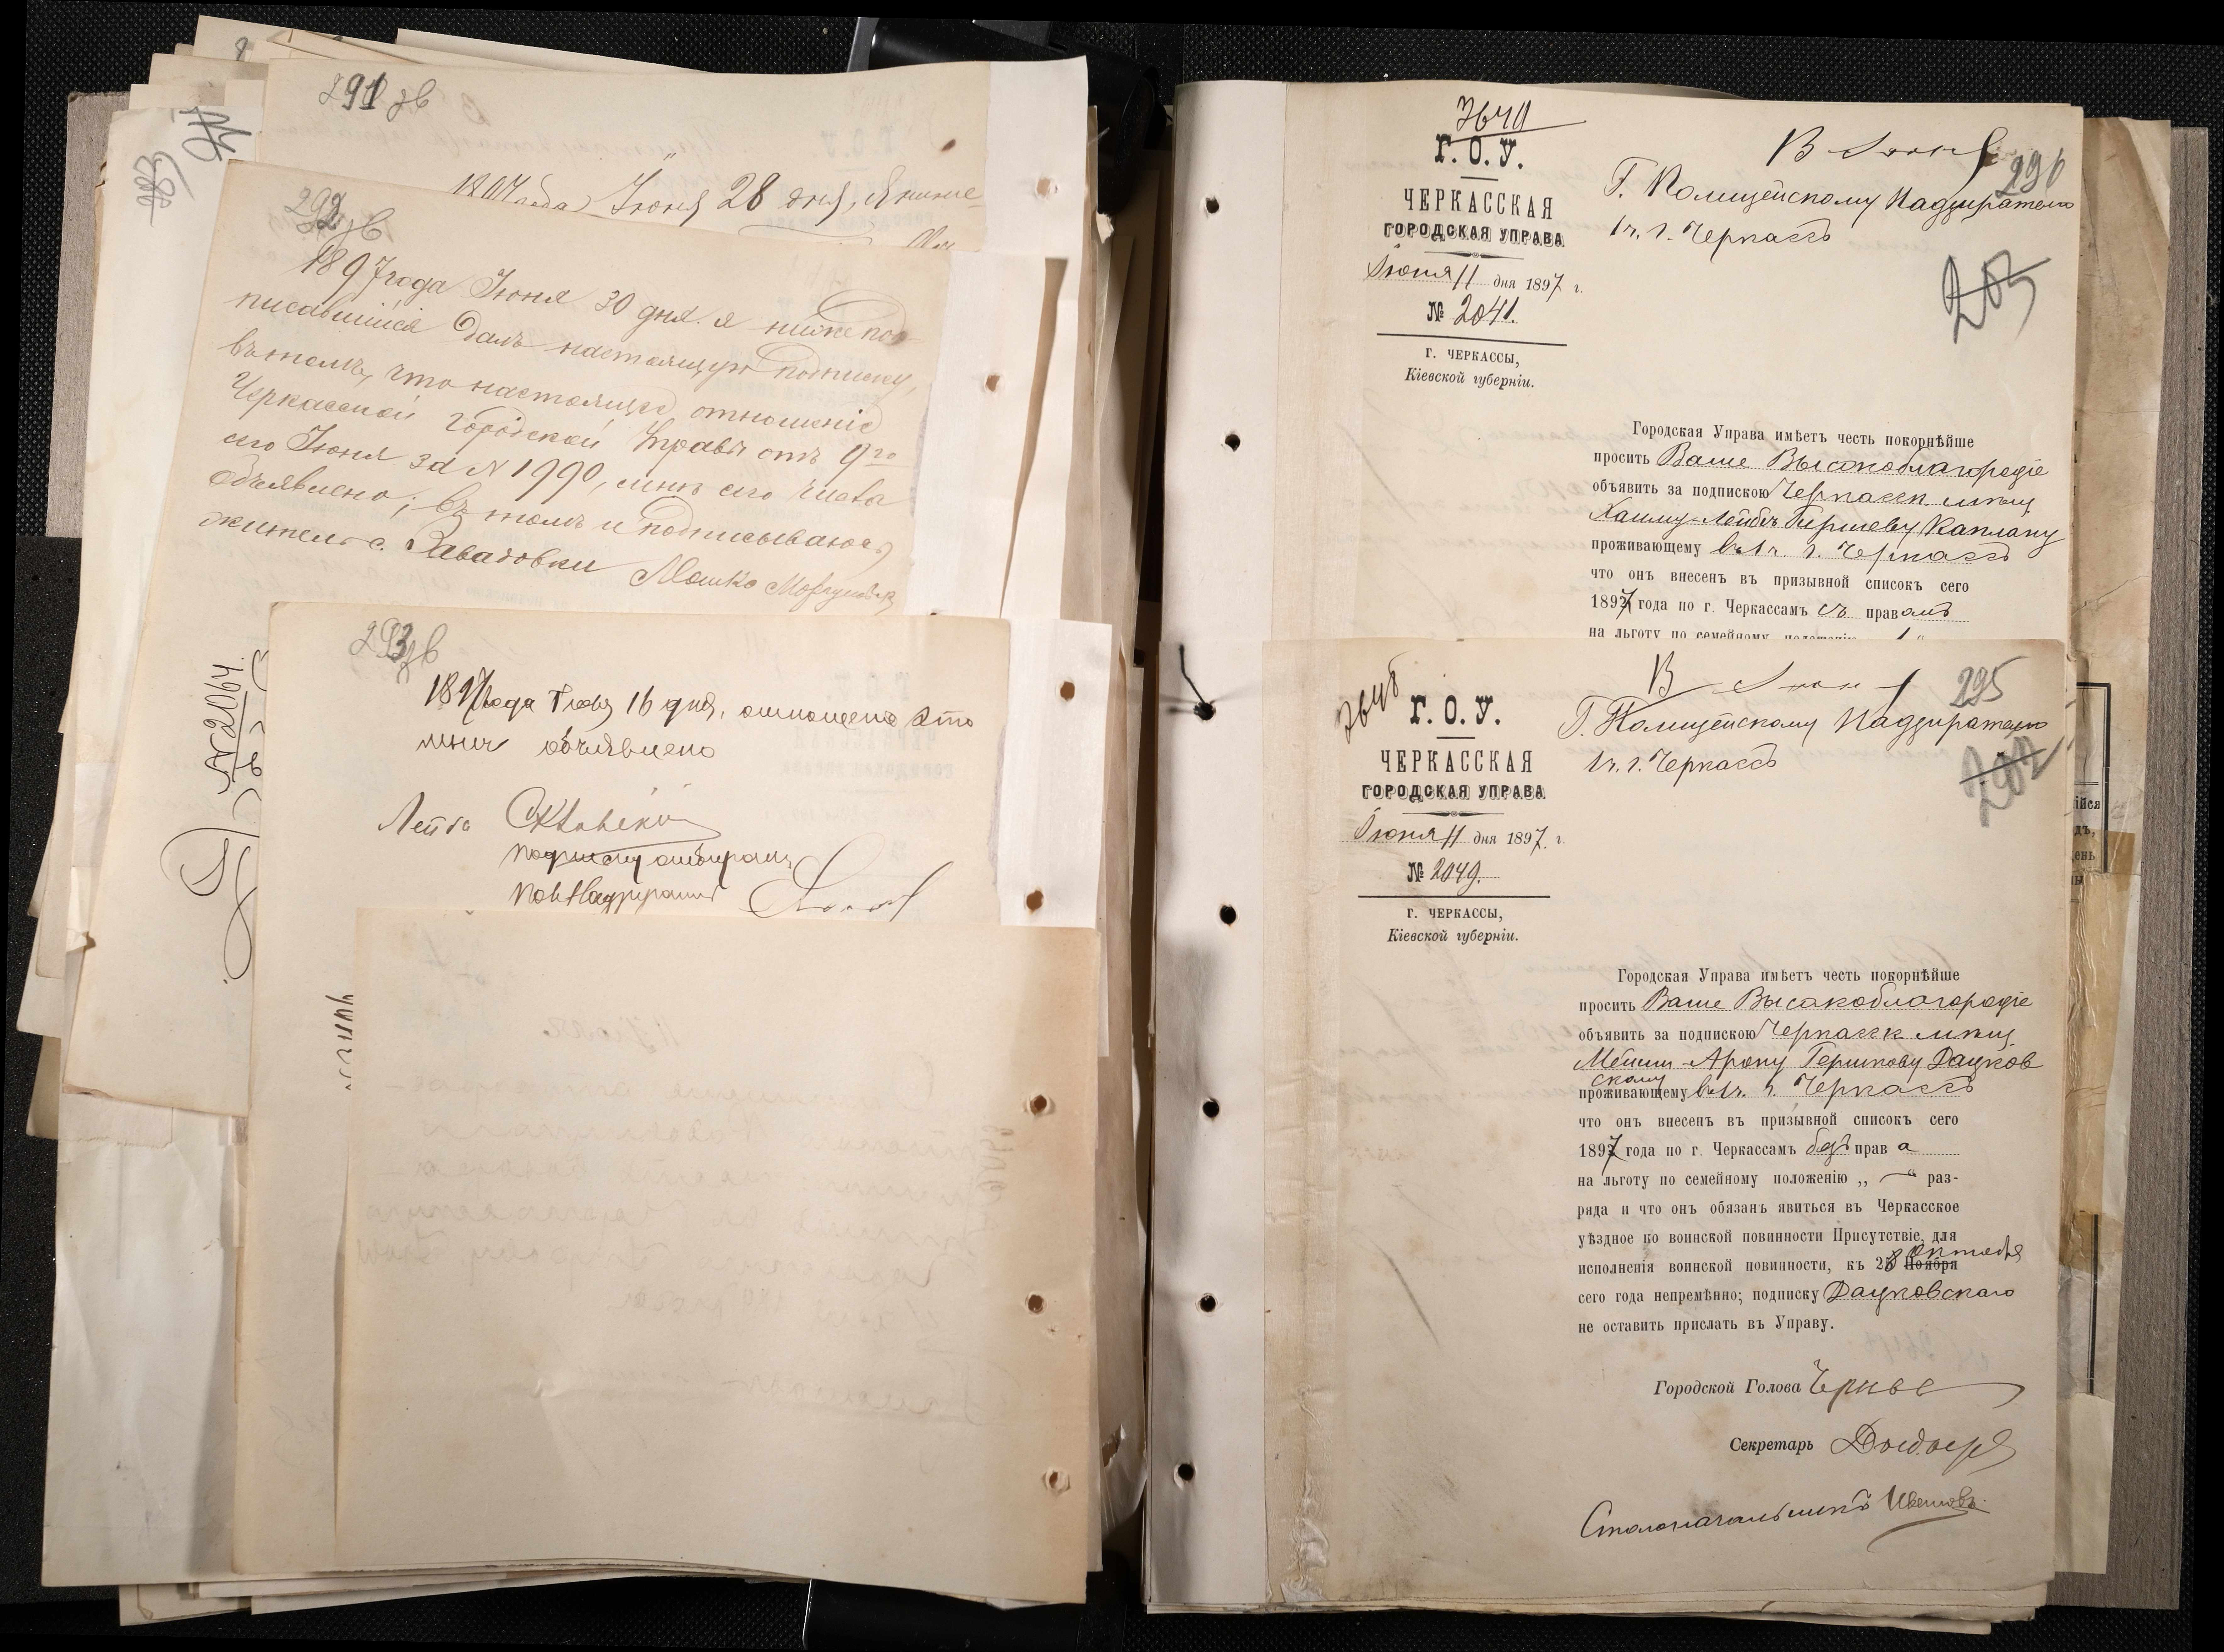 291 зв
1897 года Іюня 28 дня, я ниже-
292 зв
1897 года Іюня 30 дня. я нижепод-
писавшийся далъ настоящую подписку,
въ томъ, что настоящее отношеніе
Черкасской Городской Управы отъ 9го
сего Іюня за N 1990, мнѣ сего числа
объявлено; въ томъ и подписываюсь
житель с. Завадовки Мошко
N 2064.
293 зв
1897 года Іюня 16 дня, отношение это
мнѣ объявлено
Лейба
подписку отбиралъ
Пол Надзиратель
3649
Г. О. У.
ЧЕРКАССКАЯ
ГОРОДСКАЯ УПРАВА
Іюня 11 дня 1897 г.
№ 2041.
Г. ЧЕРКАССЫ,
Кіевской губерніи.
296
Г. Полицейскому Надзирателю
1 ч. г. Черкассъ
203
Городская Управа имѣетъ честь покорнѣйше
просить Ваше Высокоблагородіе
объявить за подпискою Черкасск. мѣщ
Хаиму-Лейбѣ Гиршеву Каплану
проживающему въ 1 ч. г. Черкассъ
что онъ внесенъ въ призывной списокъ сего
1897 года по г. Черкассамъ съ правамъ
на льготу по семейному положенію 1
3646
Г. О. У.
ЧЕРКАССКАЯ
ГОРОДСКАЯ УПРАВА
Іюня 11 дня 1897. г.
№ 2049.
Г. ЧЕРКАССЫ,
Кіевской губерніи.
295
Г. Полицейскому Надзирателю
1 ч. г. Черкассъ
202
Городская Управа имѣетъ честь покорнѣйше
просить Ваше Высокоблагородіе
объявить за подпискою Черкасск мѣщ
Мейши-Арону Гершкову Дацков
скому
проживающему въ 1 ч. г. Черкассъ
что онъ внесенъ въ призывной списокъ сего
1897 года по г. Черкассамъ безъ права
на льготу по семейному положенію „ — “ раз-
ряда и что онъ обязанъ явиться въ Черкасское
уѣздное по воинской повинности Присутствіе, для
октября
исполненія воинской повинности, къ 28 Ноября
сего года непремѣнно; подписку Дацковскаго
не оставить прислать въ Управу.
Городской Голова
Секретарь
Столоначальникъ Ивановъ
ійся
дъ,
ень